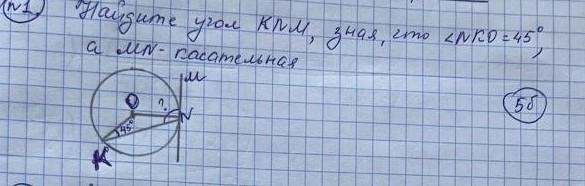 №1 Найдите угол KNM, зная, что ∠NKO = 45°,
а MN - касательная
M
O
?
N
45°
K
5б